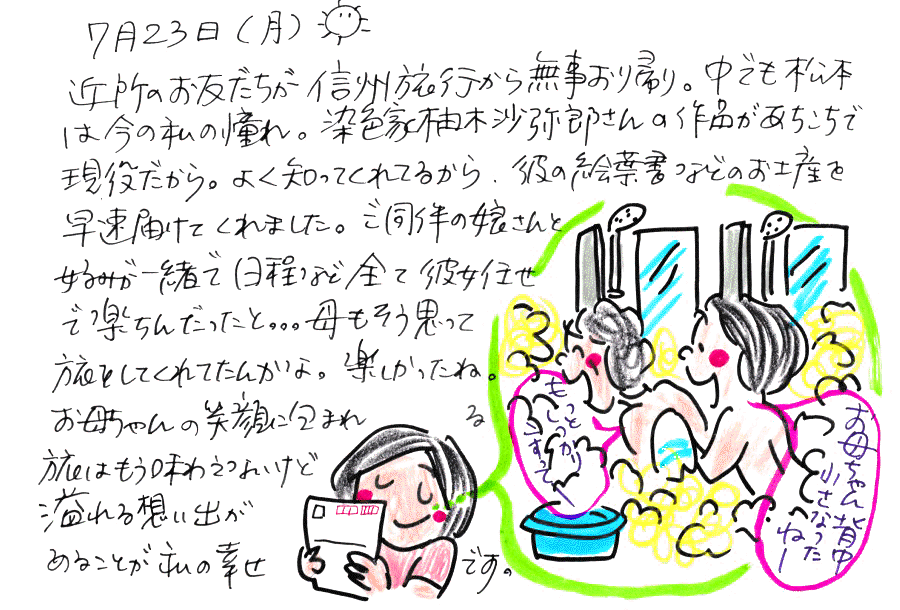 7月23日(月)
近所のお友だちが信州旅行から無事お帰り。中でも松本
は今の私の憧れ。染色家柚木沙弥郎さんの作品があちこちで
現役だから。よく知ってくれてるから、彼の絵葉書などのお土産を
早速届けてくれました。ご同伴の娘さんと
が一緒で日程など全て彼女任せ
で楽ちんだったと...母もそう思って
旅をしてくれてたんかな。楽しかったね。
お母ちゃんの笑顔に包まれる
旅はもう味わえないけど
溢れる想い出が
あることが私の幸せです。
もっと
しっかり
こすって
お母ちゃん背中
小さなった
ねー